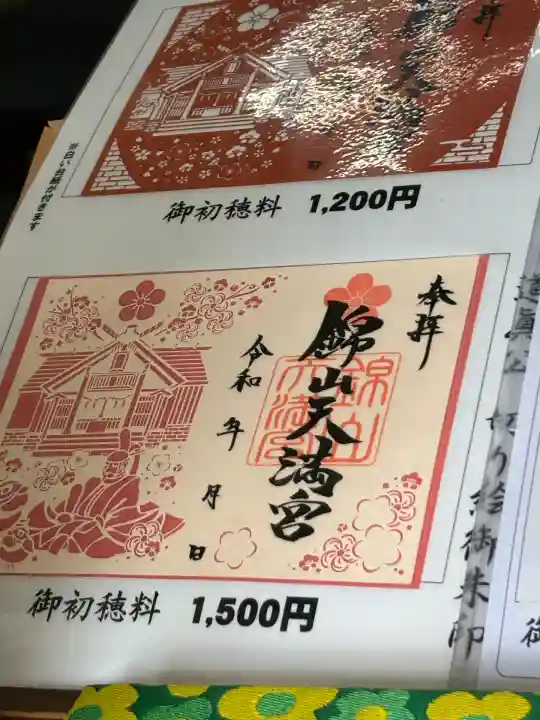 奉拝
※白い台紙が付きます
御初穂料 1,200円
奉拝
錦山天満宮
錦山
天満宮
令和 年 月 日
御初穂料 1,500円
道真公 切り絵御朱印
御